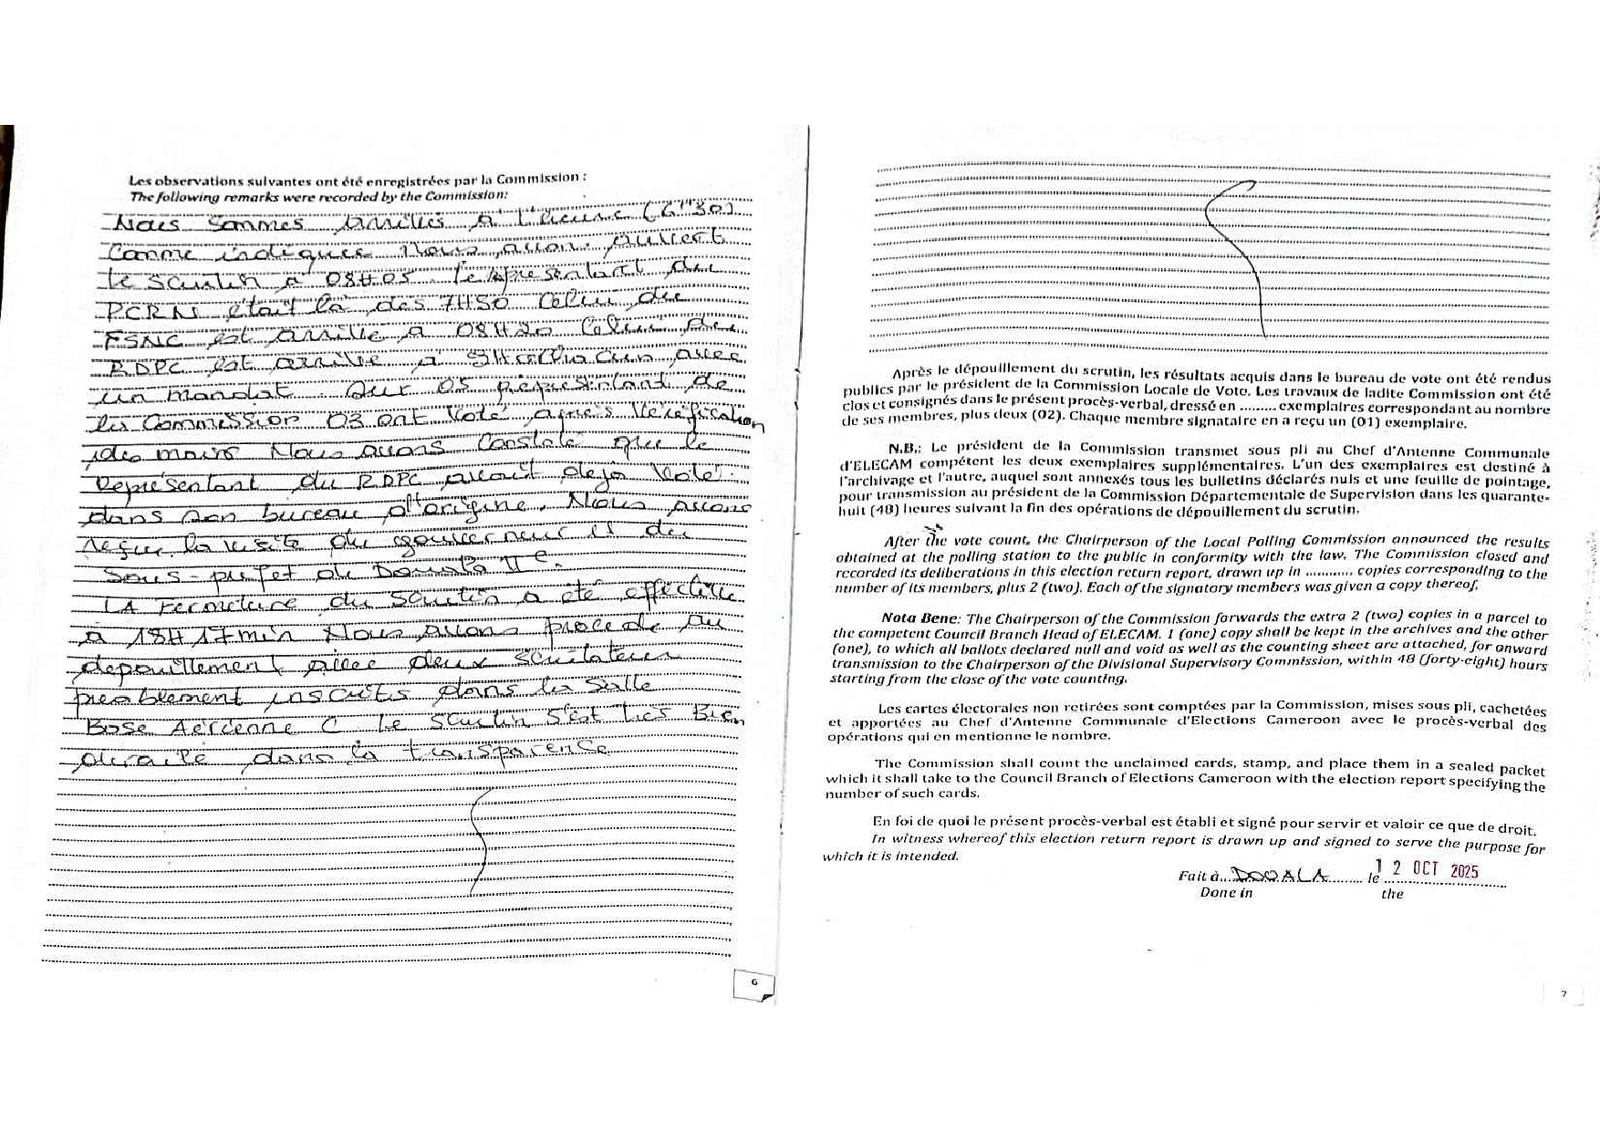 Les observations suivantes ont été enregistrées par la Commission :
The following remarks were recorded by the Commission:
Nous sommes arrivés à l'heure (6H30)
comme indiquée Nous avons ouvert
le scrutin à 08H05. le représentant du
PCRN était là dès 7H50 Celui du
FSNC est arrivé à 08H20 Celui du
RDPC est arrivé à avec
un mandat. Sur 05 représentant de
la Commission 03 ont voté, après Vérification
des mains Nous avons Constaté que le
représentant du RDPC avait déjà Voté
dans son bureau d'origine. Nous avons
reçu la visite du gouverneur et du
Sous-prefet de Douala IIe.
LA Fermeture du Scrutin a été effective
à 18H17min Nous avons procédé au
depouillement avec deux scrutateur
prealblement inscrits dans la Salle
Base Aérienne C. Le scrutin s'est très Bien
dans la transparence
6
Après le dépouillement du scrutin, les résultats acquis dans le bureau de vote ont été rendus
publics par le président de la Commission Locale de Vote. Les travaux de ladite Commission ont été
clos et consignés dans le présent procès-verbal, dressé en ......... exemplaires correspondant au nombre
de ses membres, plus deux (02). Chaque membre signataire en a reçu un (01) exemplaire.
N.B.: Le président de la Commission transmet sous pli au Chef d'Antenne Communale
d'ELECAM compétent les deux exemplaires supplémentaires. L'un des exemplaires est destiné à
l'archivage et l'autre, auquel sont annexés tous les bulletins déclarés nuls et une feuille de pointage,
pour transmission au président de la Commission Départementale de Supervision dans les quarante-
huit (48) heures suivant la fin des opérations de dépouillement du scrutin.
After the vote count, the Chairperson of the Local Polling Commission announced the results
obtained at the polling station to the public in conformity with the law. The Commission closed and
recorded its deliberations in this election return report, drawn up in ........... copies corresponding to the
number of its members, plus 2 (two). Each of the signatory members was given a copy thereof.
Nota Bene: The Chairperson of the Commission forwards the extra 2 (two) copies in a parcel to
the competent Council Branch Head of ELECAM. 1 (one) copy shall be kept in the archives and the other
(one), to which all ballots declared null and void as well as the counting sheet are attached, for onward
transmission to the Chairperson of the Divisional Supervisory Commission, within 48 (forty-eight) hours
starting from the close of the vote counting.
Les cartes électorales non retirées sont comptées par la Commission, mises sous pli, cachetées
et apportées au Chef d'Antenne Communale d'Elections Cameroon avec le procès-verbal des
opérations qui en mentionne le nombre.
The Commission shall count the unclaimed cards, stamp, and place them in a sealed packet
which it shall take to the Council Branch of Elections Cameroon with the election report specifying the
number of such cards.
En foi de quoi le présent procès-verbal est établi et signé pour servir et valoir ce que de droit.
In witness whereof this election return report is drawn up and signed to serve the purpose for
which it is intended.
Fait à...DOUALA........ le 12 OCT 2025
Done in the
7